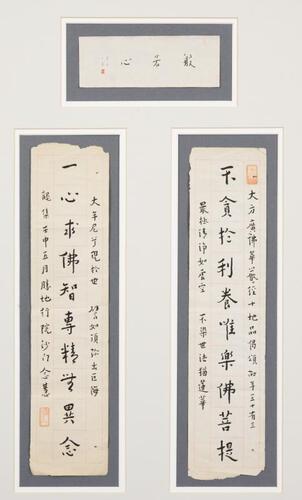 般若心
大方廣佛華嚴經十地品偈頌 時年五十有三
不貪於利養唯樂佛菩提
最極清淨如虛空 不染世法猶蓮華
大牟尼尊現於世 譬如須弥出巨海
一心求佛智專精無異念
龍集壬申五月勝地行院沙門念慧